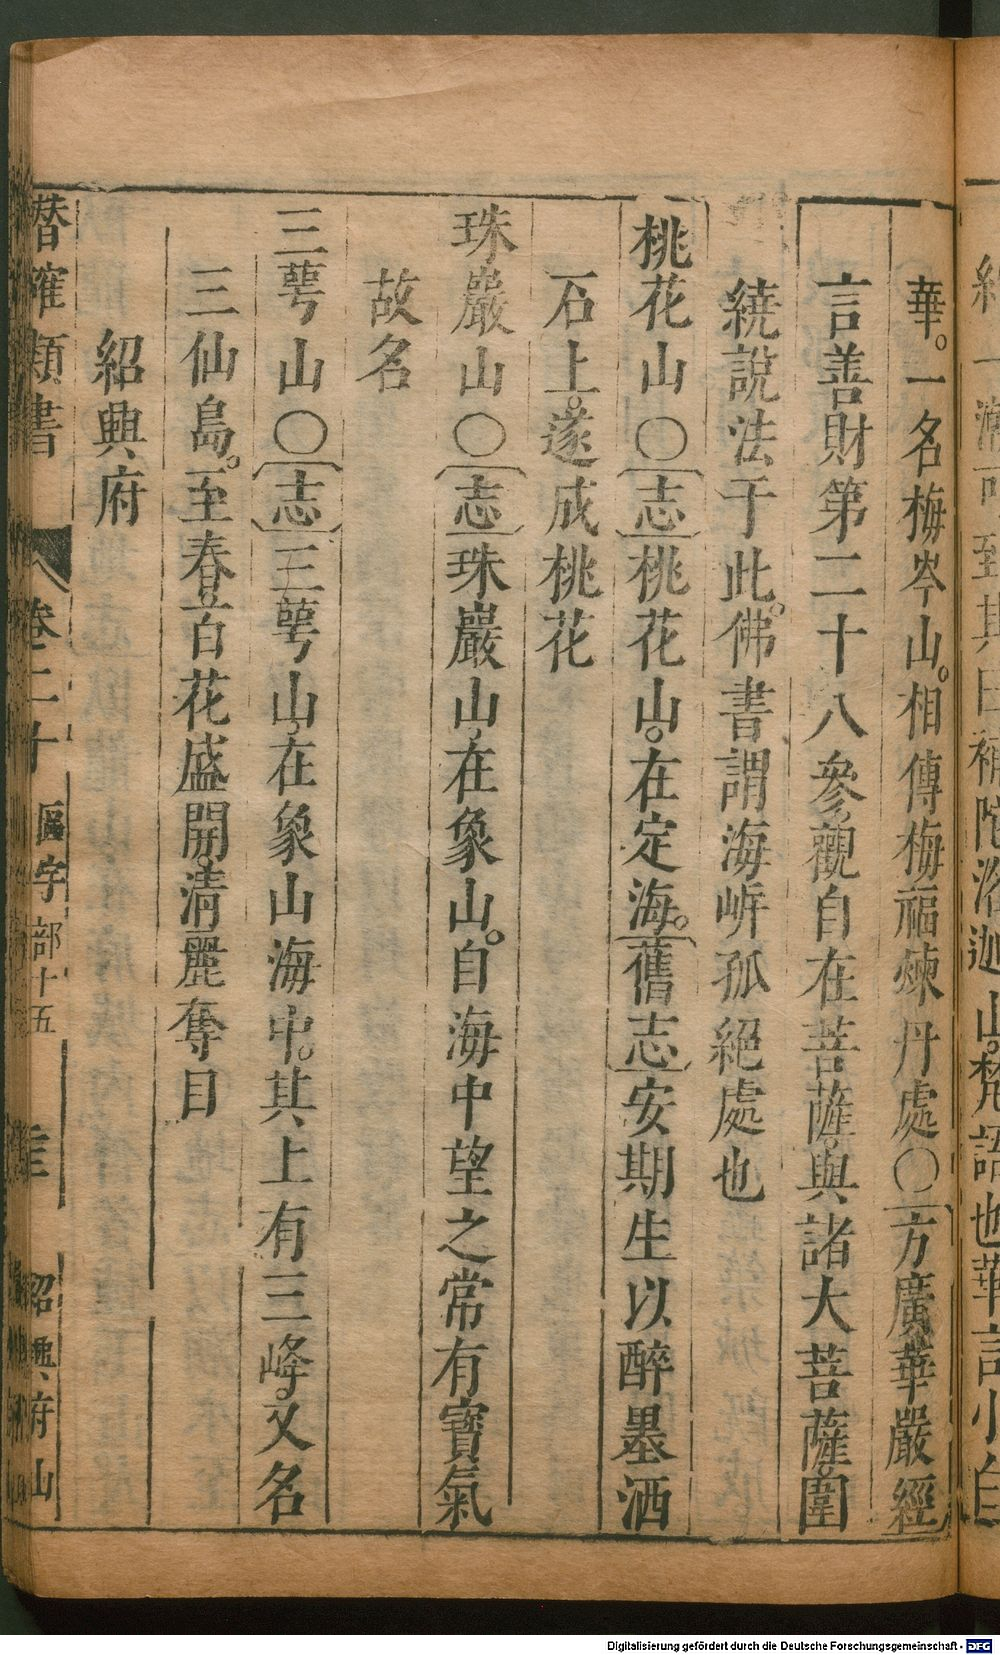 華。一名梅岑山。相傳梅福煉丹處〇方廣華嚴經
言善財第二十八參觀自在菩薩。與諸大菩薩。圍
繞說法于此。佛書謂海岍孤絕處也
桃花山〇志桃花山。在定海。舊志安期生以醉墨洒
石上。遂成桃花
珠巖山〇志珠巖山。在象山。自海中望之常有寶氣
故名
三萼山〇志三萼山。在象山海中。其上有三峰。又名
三仙島。至春百花盛開。清麗奪目
紹興府
潛確類書 卷二十 區宇部十五 紹興府山
Digitalisierung gefördert durch die Deutsche Forschungsgemeinschaft - DFG